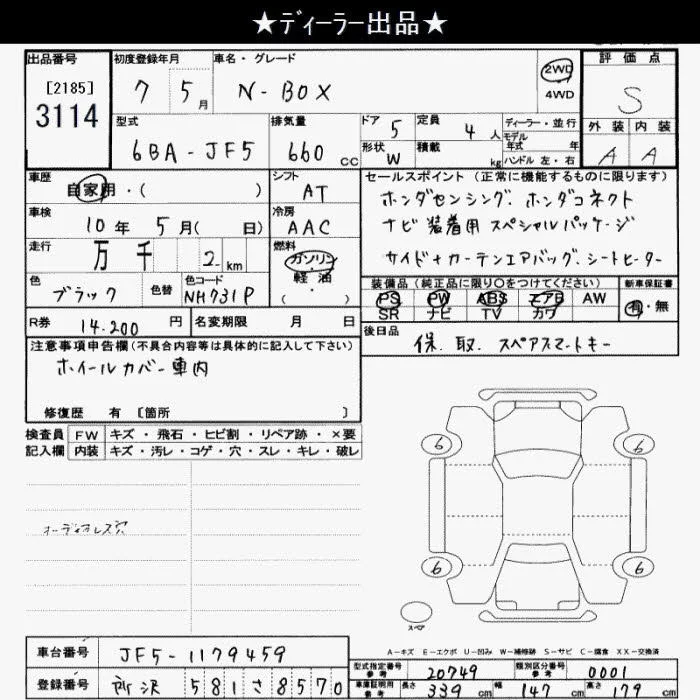 ★ディーラー出品★
出品番号
[2185]
3114
初度登録年月
7 5月
車名・グレード
N-BOX
2WD
4WD
評価点
S
外装 内装
A A
型式
6BA-JF5
排気量
660 cc
ドア 5
定員 4 人
形状 W
積載 kg
ディーラー・並行
モデル年式 年
ハンドル 左・右
車歴
自家用・( )
シフト
AT
車検
10年 5月( 日)
冷房
AAC
走行
万 千 2 km
燃料
ガソリン・軽油
( )
色
ブラック
色替
色コード
NH731P
R券 14.200 円
名変期限 月 日
セールスポイント (正常に機能するものに限ります)
ホンダセンシング、ホンダコネクト
ナビ装着用スペシャルパッケージ
サイド+カーテンエアバッグ、シートヒーター
装備品 (純正品に限り○をつけてください)
PS PW ABS エアB AW
SR ナビ TV カワ
新車保証書
有・無
後日品
保、取、スペアスマートキー
注意事項申告欄 (不具合内容等は具体的に記入して下さい)
ホイールカバー車内
修復歴 有 [箇所 ]
検査員記入欄
FW キズ・飛石・ヒビ割・リペア跡・×要
内装 キズ・汚レ・コゲ・穴・スレ・キレ・破レ
オーディオレス穴
6 6
6 6
スペア
A-キズ E-エクボ U-凹み W-補修跡 S-サビ C-腐食 XX-交換済
車台番号 JF5-1179459
登録番号 所沢 581 さ 8570
型式指定番号 参考 20749
類別区分番号 参考 0001
車庫証明用 参考 長さ 339 cm 幅 147 cm 高さ 179 cm